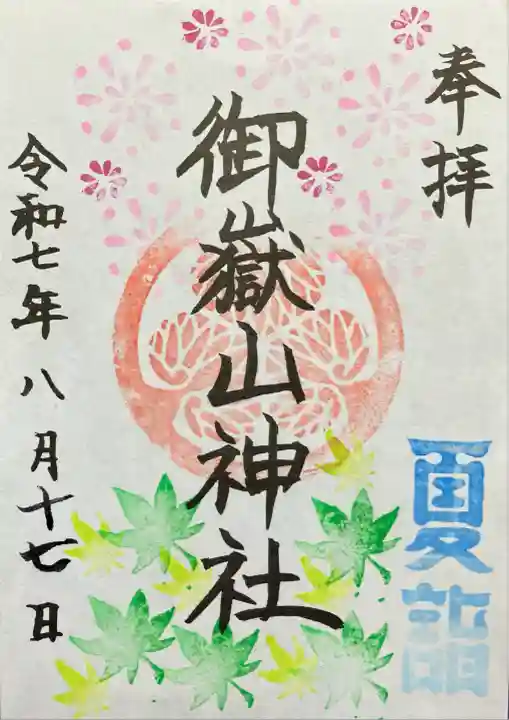 奉拝
御嶽山神社
令和七年八月十七日
夏詣